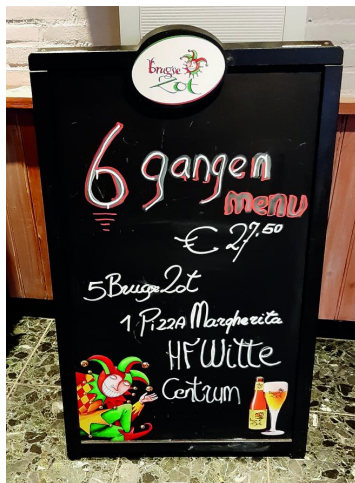 brugse
Zot
6 gangen
menu
€ 27,50
5 Brugse Zot
1 Pizza Margherita
HF Witte
Centrum